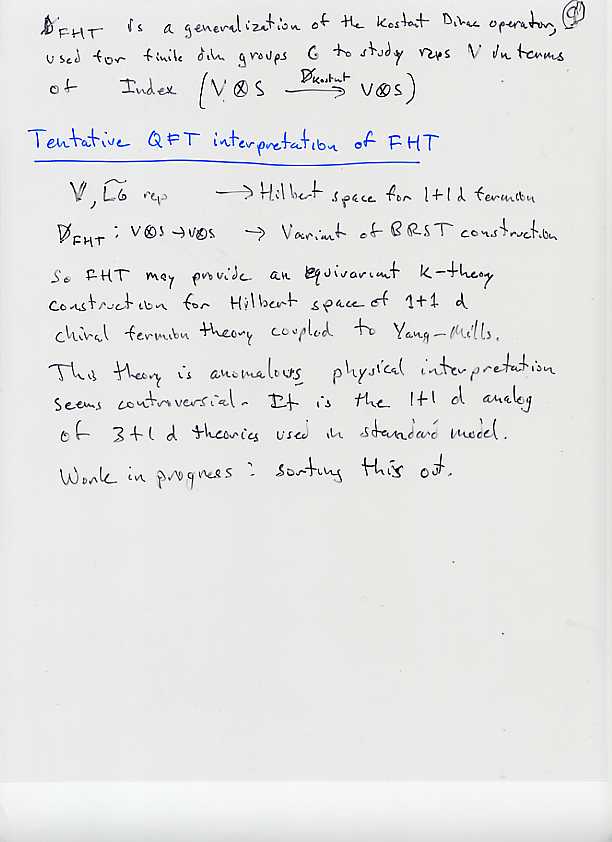 D̸_FHT is a generalization of the Kostant Dirac operator, 9
used for finite dim groups G to study reps V in terms
of Index (V⊗S D̸_Kostant→ V⊗S)
Tentative QFT interpretation of FHT
V, L̃G rep → Hilbert space for 1+1 d fermion
D̸_FHT : V⊗S → V⊗S → Variant of BRST construction
So FHT may provide an equivariant K-theory
construction for Hilbert space of 1+1 d
chiral fermion theory coupled to Yang-Mills.
This theory is anomalous, physical interpretation
seems controversial. It is the 1+1 d analog
of 3+1 d theories used in standard model.
Work in progress: sorting this out.